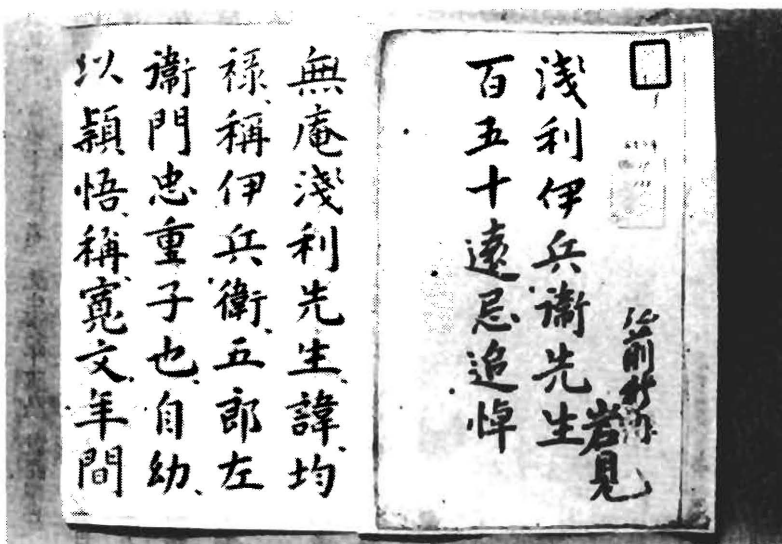 淺利伊兵衞先生
百五十遠忌追悼
岩見
無庵淺利先生、諱均
禄、稱伊兵衛、五郎左
衞門忠重子也、自幼、
以頴悟、稱、寛文、年間